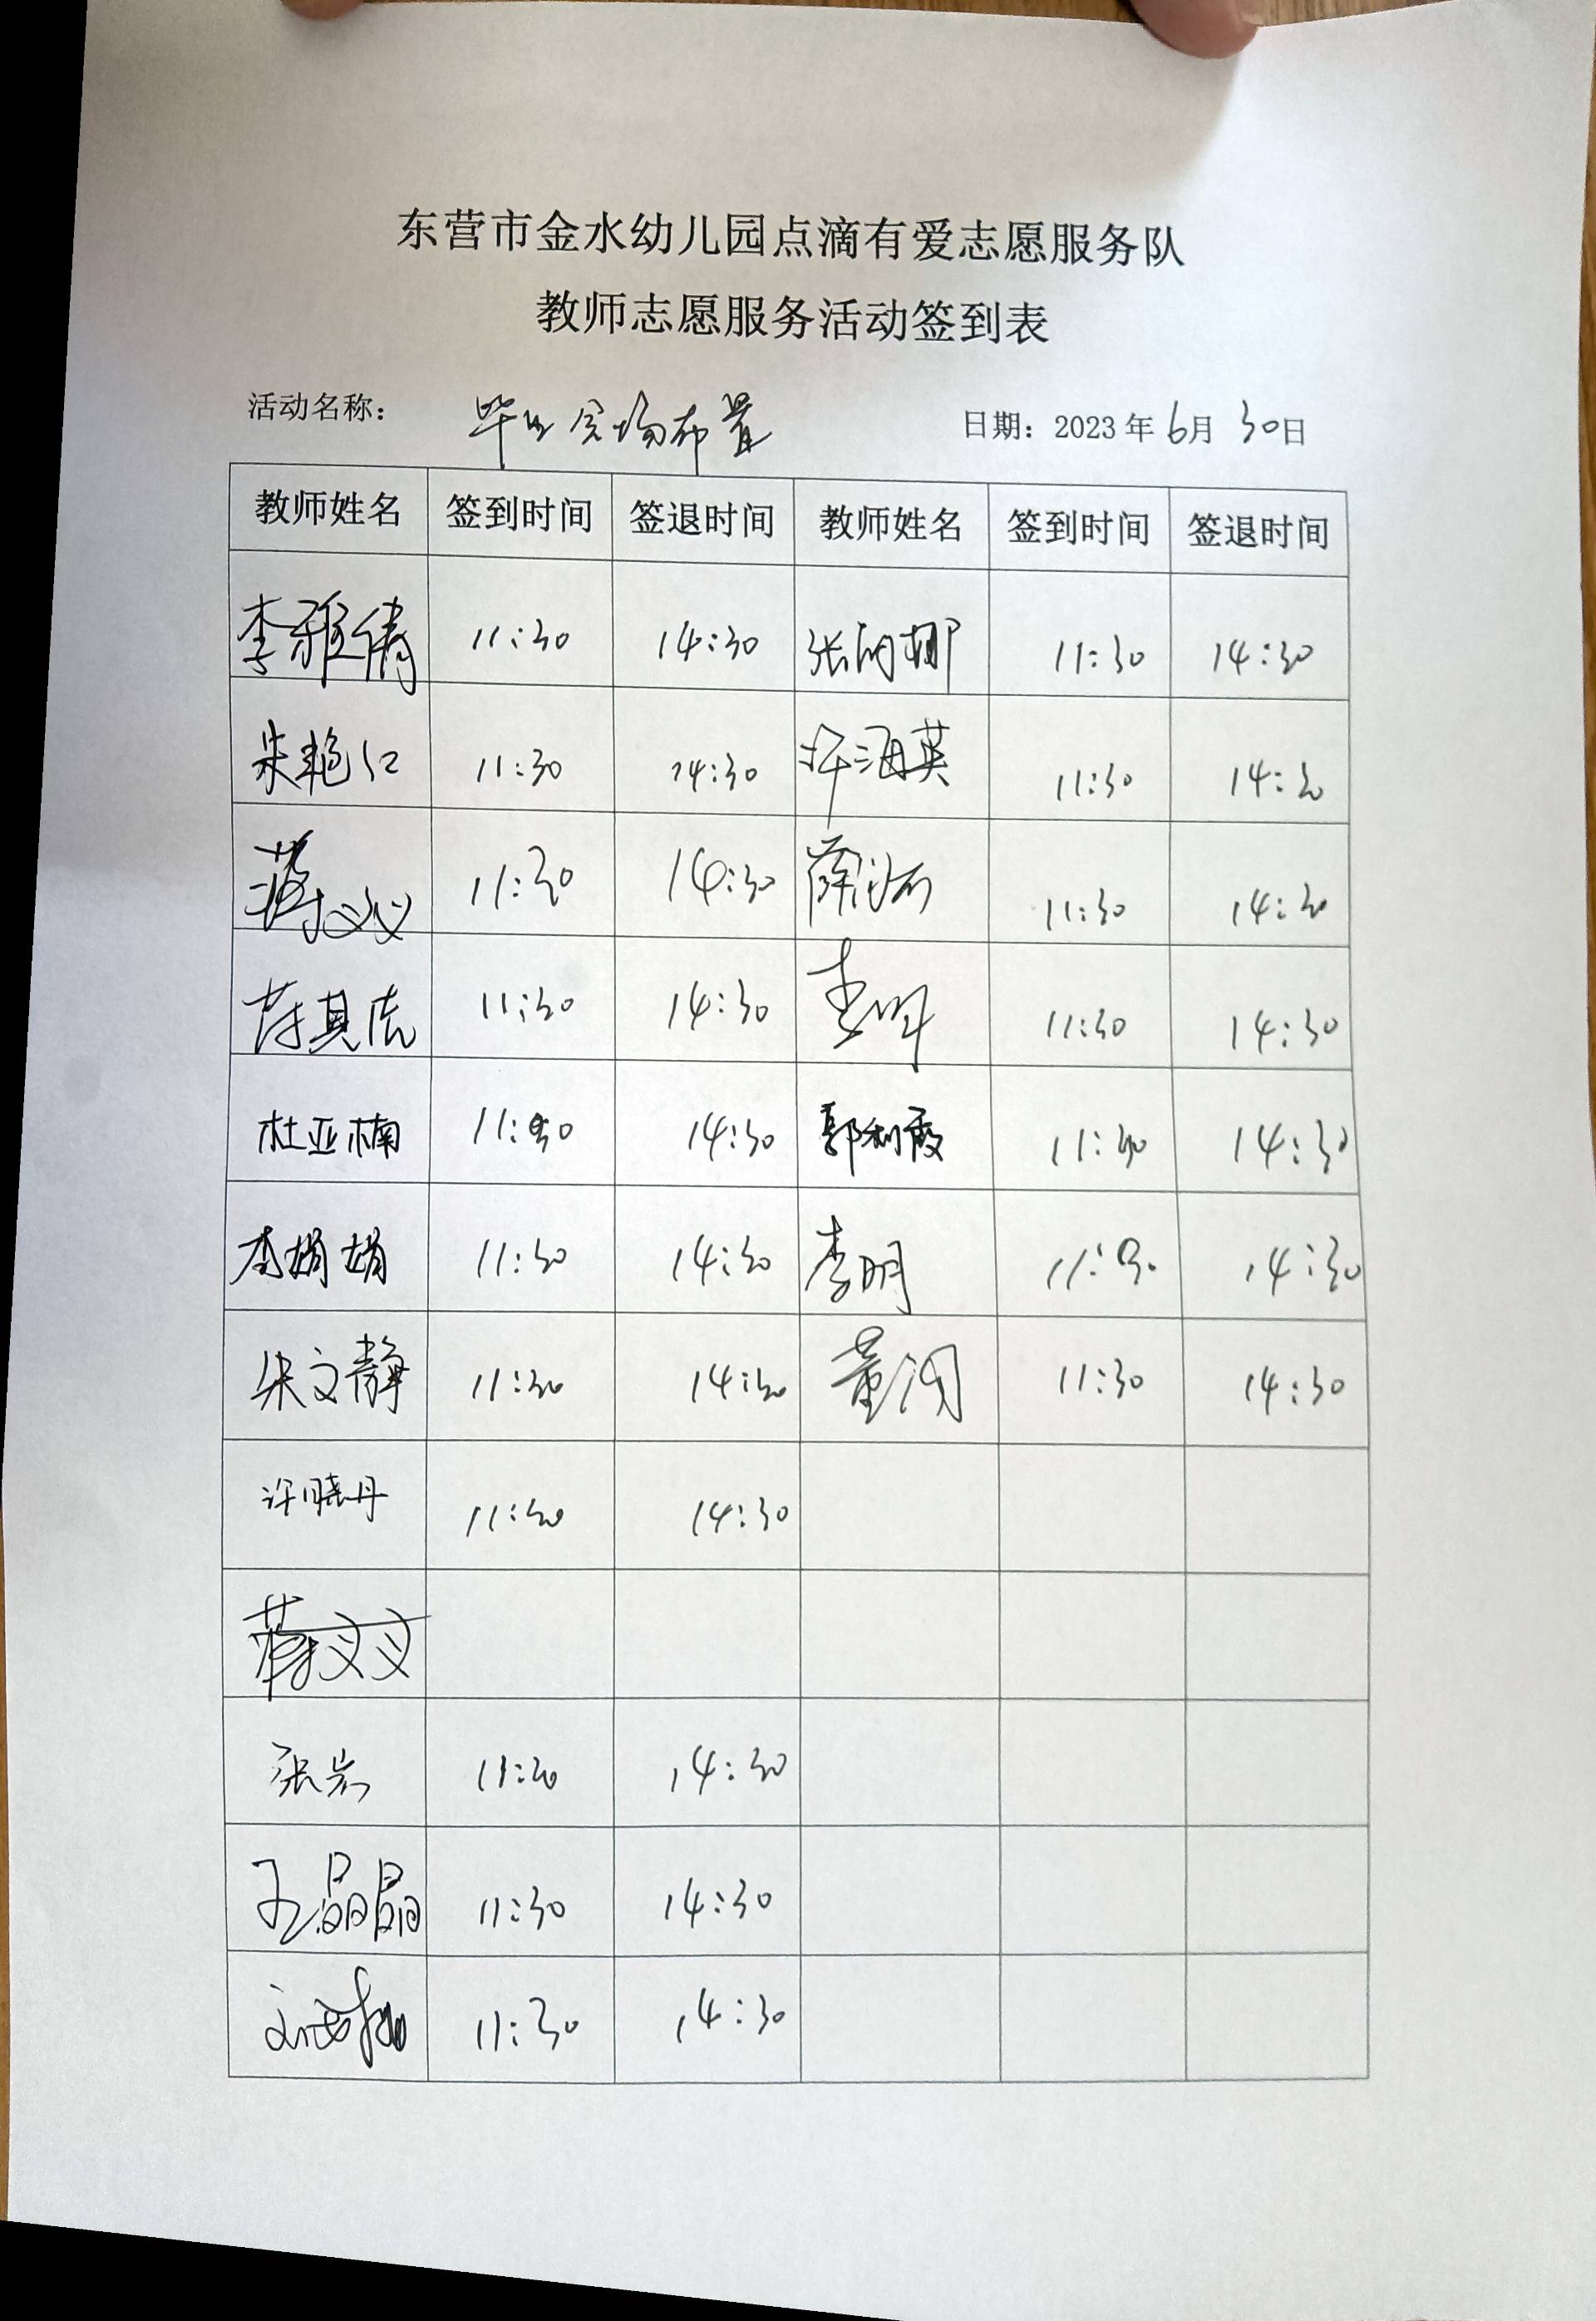 东营市金水幼儿园点滴有爱志愿服务队
教师志愿服务活动签到表
活动名称： 毕业会场布置 日期：2023年6月30日
教师姓名 签到时间 签退时间 教师姓名 签到时间 签退时间
李雅倩 11:30 14:30 张娜 11:30 14:30
朱艳红 11:30 14:30 许海英 11:30 14:30
蒋文文 11:30 14:30 薛 11:30 14:30
11:30 14:30 11:30 14:30
杜亚楠 11:30 14:30 郭利霞 11:30 14:30
李娟娟 11:30 14:30 李明 11:30 14:30
朱文静 11:30 14:30 董润 11:30 14:30
许晓丹 11:30 14:30
蒋文文
张岩 11:30 14:30
王晶晶 11:30 14:30
刘 11:30 14:30